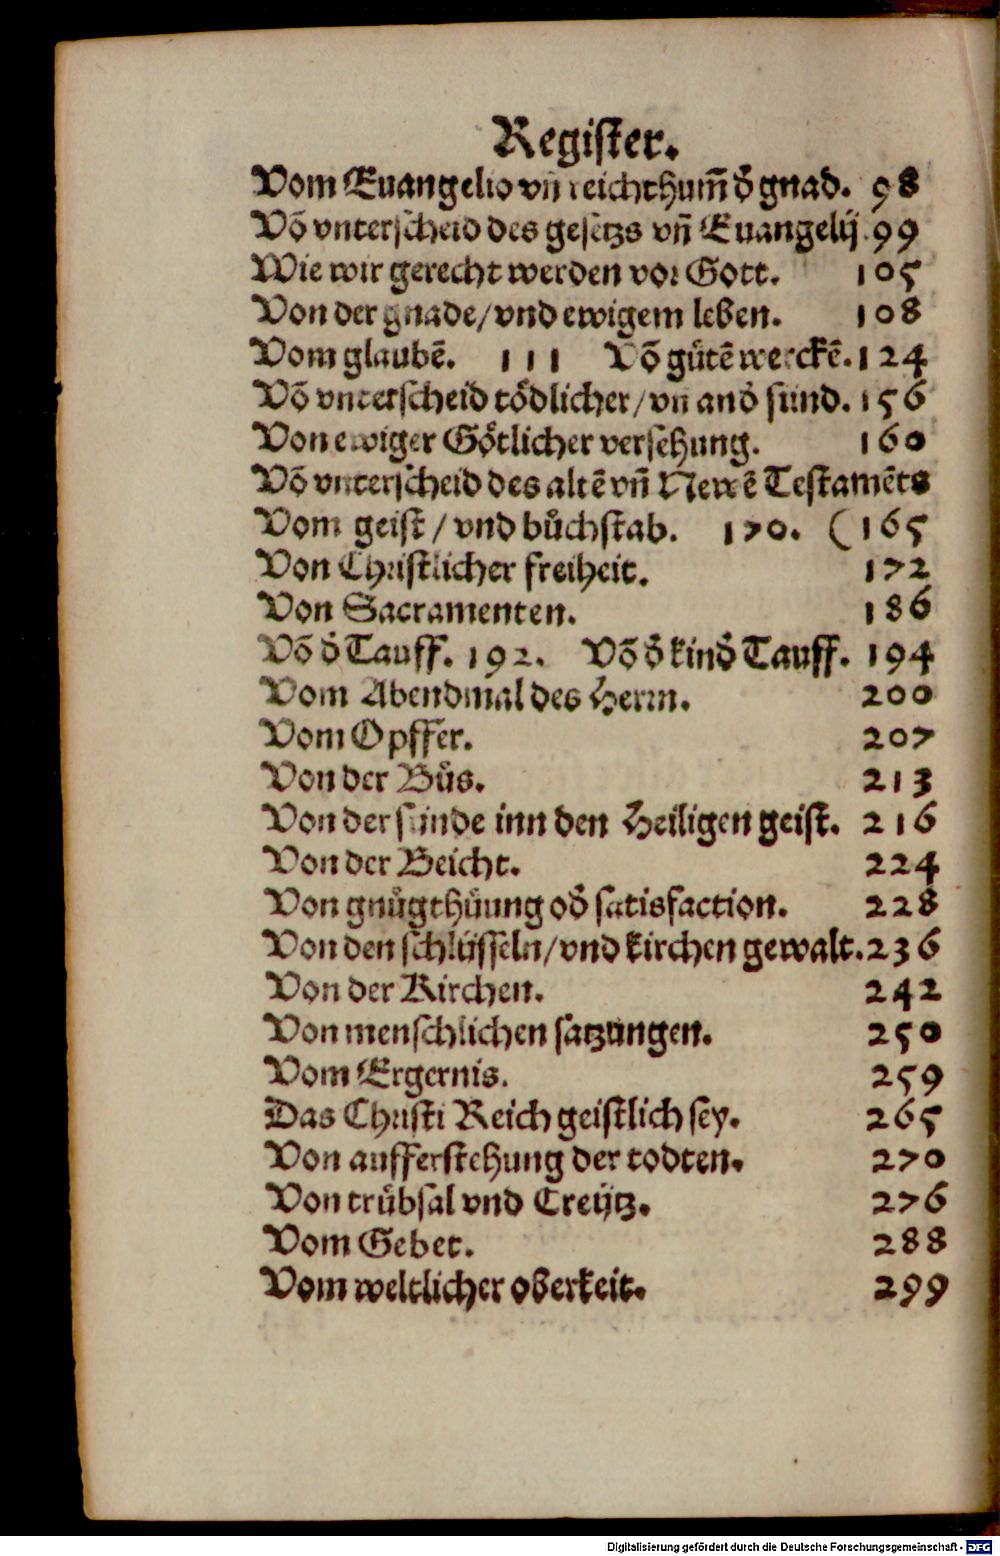 Register.
Vom Euangelio vñ reichthum̃ d̕ gnad. 98
Võ vnterscheid des gesetzs vñ Euangelij. 99
Wie wir gerecht werden vor Gott. 105
Von der gnade/vnd ewigem leben. 108
Vom glaubẽ. 111 Võ gůtẽ werckẽ. 124
Võ vnterscheid tödlicher/vñ and̕ sünd. 156
Von ewiger Götlicher versehung. 160
Võ vnterscheid des altẽ vñ Newẽ Testamẽts
Vom geist / vnd bůchstab. 170. (165
Von Christlicher freiheit. 172
Von Sacramenten. 186
Võ d̕ Tauff. 192. Võ d̕ kind̕ Tauff. 194
Vom Abendmal des Herrn. 200
Vom Opffer. 207
Von der Bůs. 213
Von der sünde inn den Heiligen geist. 216
Von der Beicht. 224
Von gnůgthůung od̕ satisfaction. 228
Von den schlüsseln/vnd kirchen gewalt. 236
Von der Kirchen. 242
Von menschlichen satzungen. 250
Vom Ergernis. 259
Das Christi Reich geistlich sey. 265
Von aufferstehung der todten. 270
Von trůbsal vnd Creütz. 276
Vom Gebet. 288
Vom weltlicher oberkeit. 299
Digitalisierung gefördert durch die Deutsche Forschungsgemeinschaft - DFG